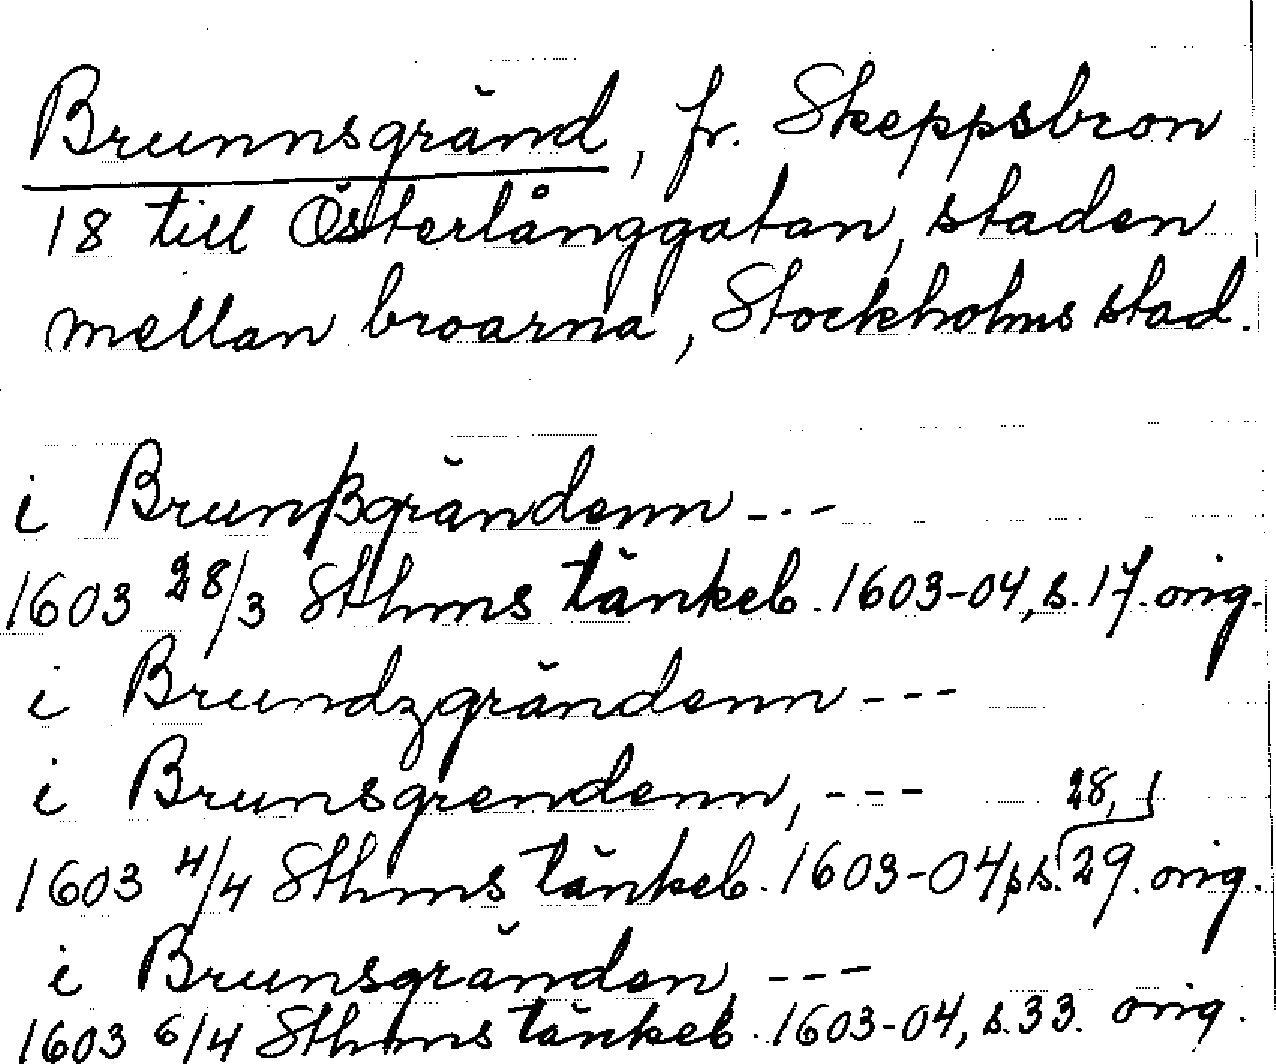 Brunnsgränd, fr. Skeppsbron
18 till Österlånggatan, staden
mellan broarna, Stockholms stad.
i Brunßgrändenn ---
1603 28/3 Sthms tänkeb. 1603-04, s. 17. orig.
i Brundzgrändenn ---
i Brunsgrendenn, ---
28,
1603 4/4 Sthms tänkeb. 1603-04, s. 29. orig.
i Brunsgränden, ---
1603 6/4 Sthms tänkeb. 1603-04, s. 33. orig.